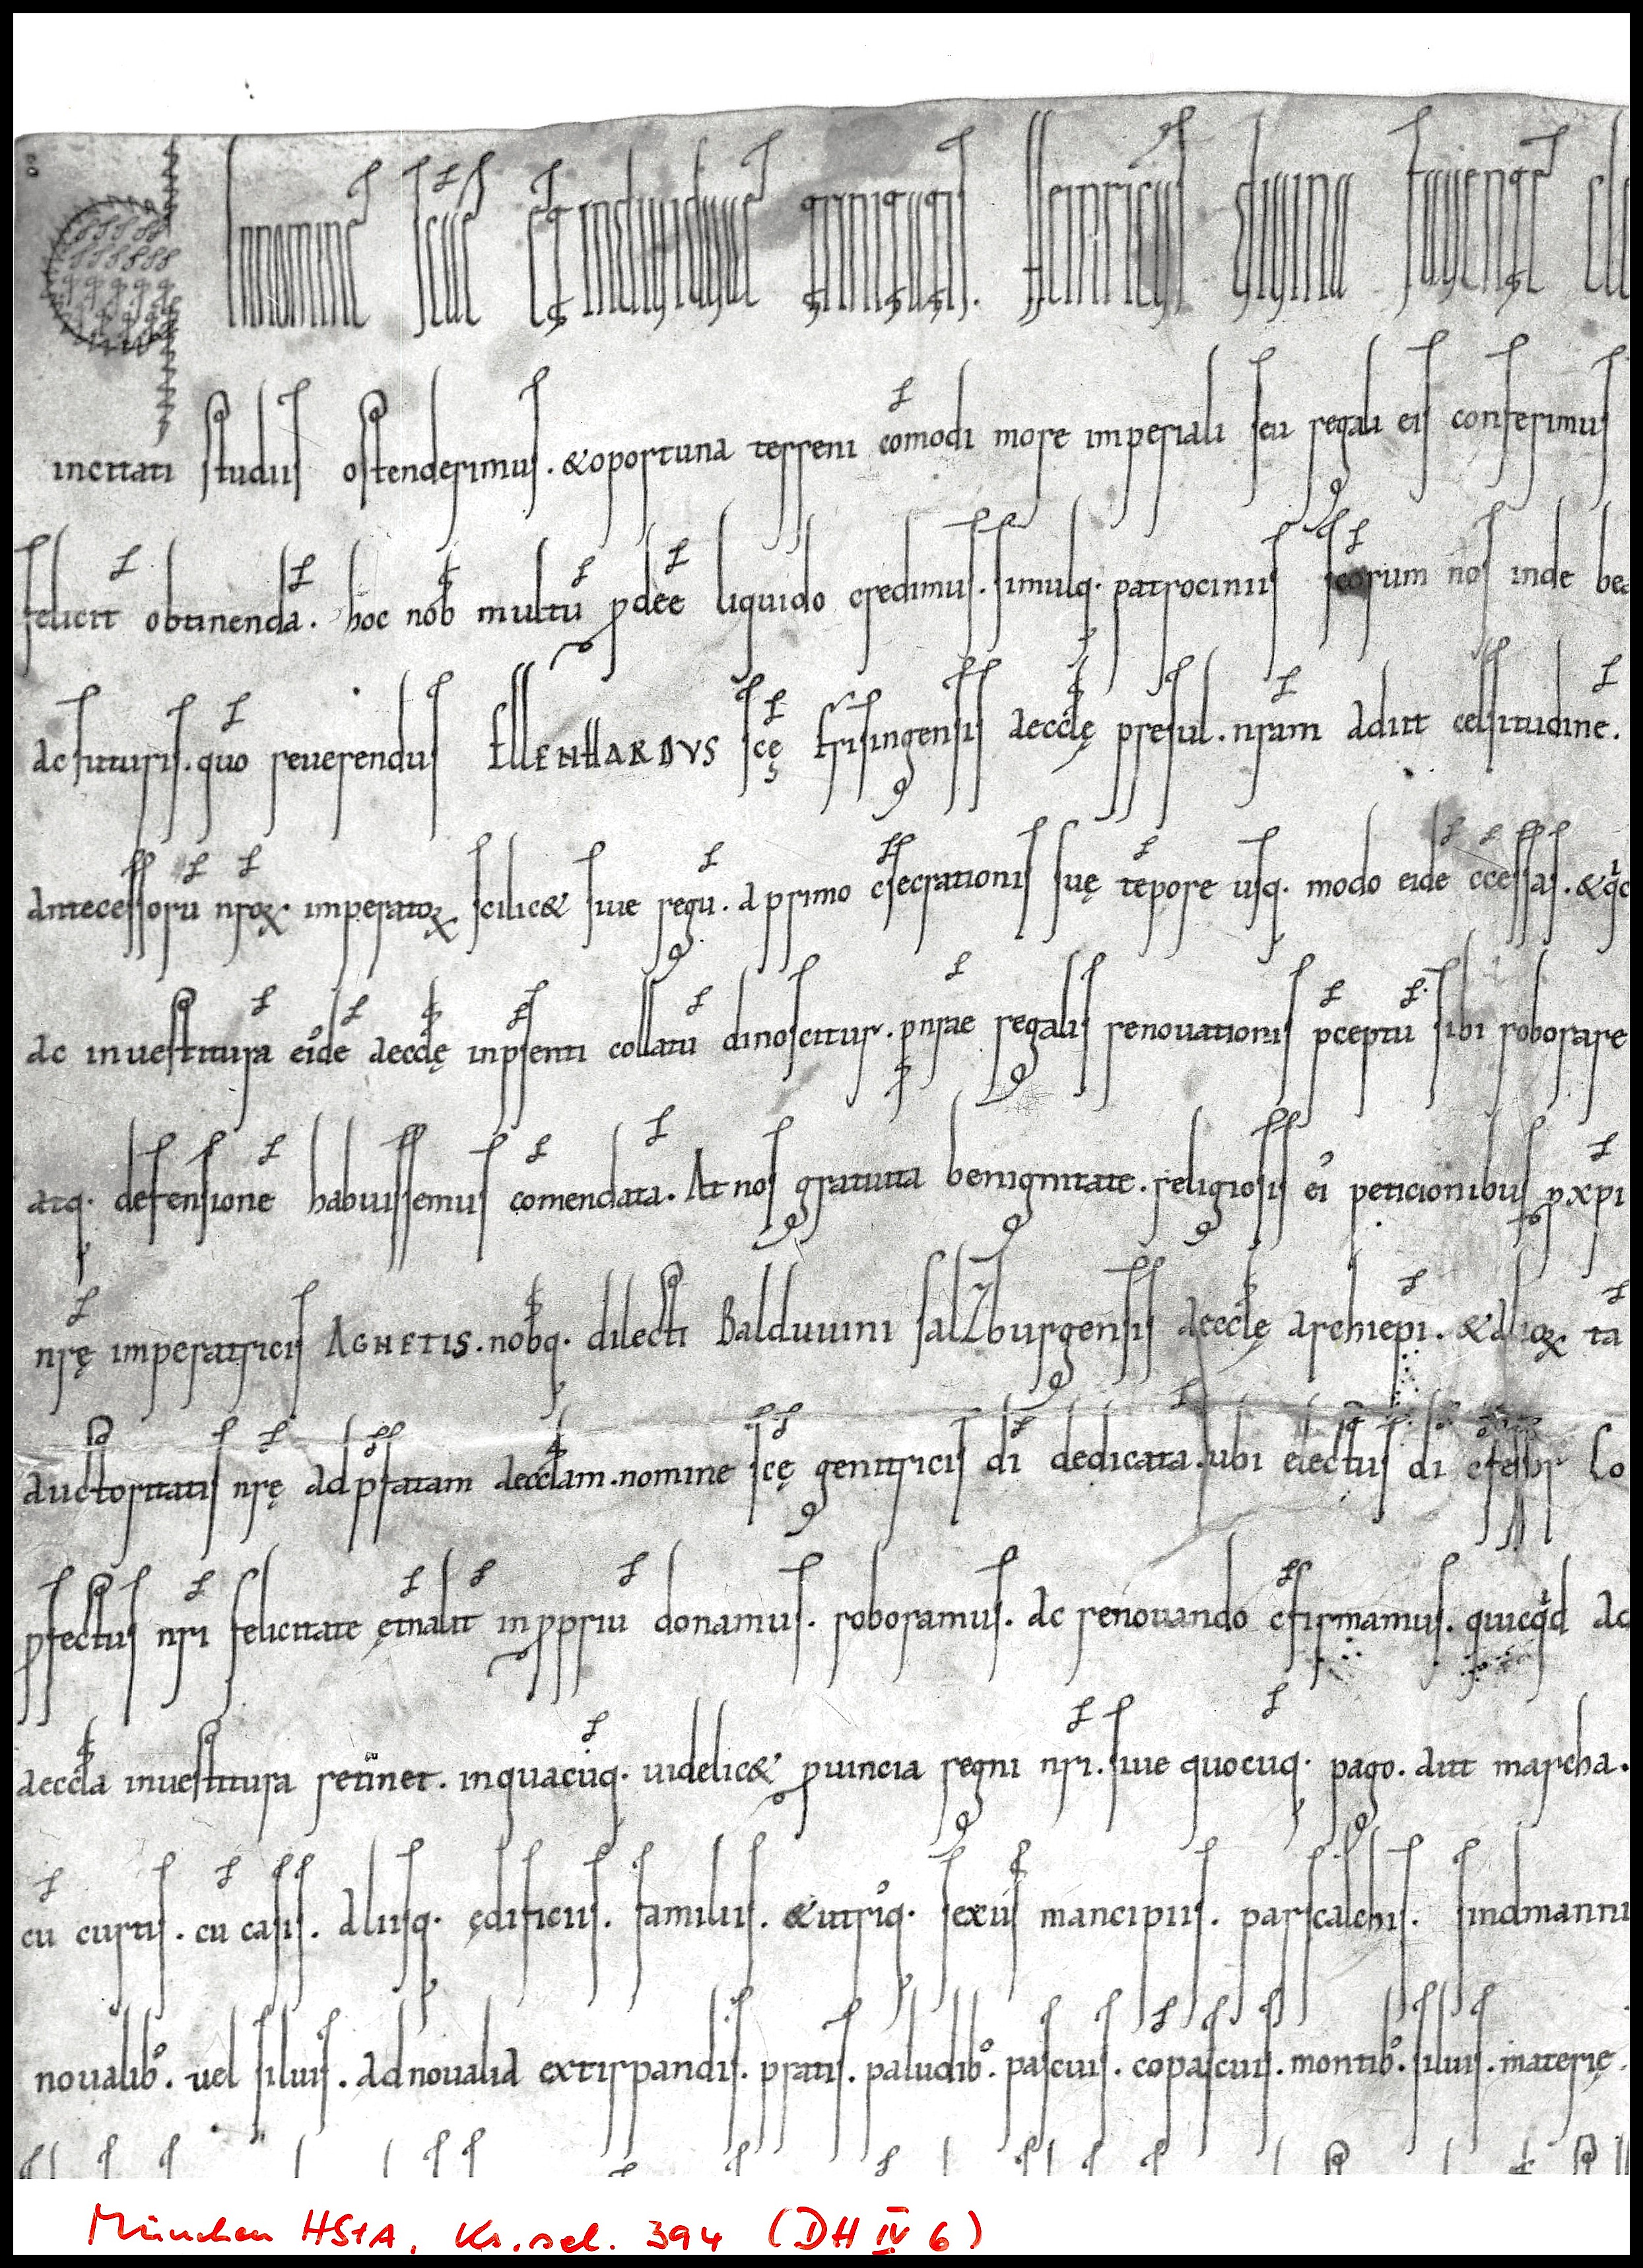 In nomine scae et individuae trinitatis. Heinricus divina favente cle
incitati studiis ostenderimus. & oportuna terreni cōmodi more imperiali seu regali eis conferimus
felicit̄ obtinenda̅. hoc nob̄ multū ꝓdēe liquido credimus. simulq; patrociniis sc̄orum nos inde be
ac futuris. quo reuerendus ELLENHARDVS sc̄ę frisingensis aecclę presul. nr̄am adiit celsitudine̅.
antecessorū nr̄oꝝ. imperatoꝝ scilic& siue regū. a primo c̄secrationis suę te̅pore usq; modo eide̅ c̄cessas. & qͥc
ac inuestitura eide̅ aecclę in p̄senti collatū dinoscitur. p̄nsae regalis renouationis p̄ceptū sibi roborare
atq; defensione̅ habuissemus co̅mendata̅. At nos gratuita benignitate. religiosis ei᾽ peticionibus ꝑ xpi
nr̄ę imperatricis AGNETIS. nob̄q; dilecti Balduuini salzburgensis aecclę archiep̄i. & alioꝝ ta̅
auctoritatis nr̄ę ad p̄fatam aecclam. nomine sc̄ę genitricis di̅ dedicata̅. ubi electus di̅ c̄fessor Co
ꝓfectus nr̄i felicitate ęt̄nalit̄ in ꝓpriu̅ donamus. roboramus. ac renouando c̄firmamus. quicqͥd ad
aeccla inuestitura retinet. in quacu̅q; uidelic& ꝓuincia regni nr̄i. siue quocu̅q; pago. aut marcha.
cu̅ curtis. cu̅ casis. aliisq; ędificiis. familiis. & utriq; sexus mancipiis. parscalchis. sindmanni
noualib᾽. uel siluis. ad noualia extirpandis. pratis. paludib᾽. pascuis. co̅pascuis. montib᾽. siluis. materię.
München HStA, Ks. sel. 394 (DH IV 6)